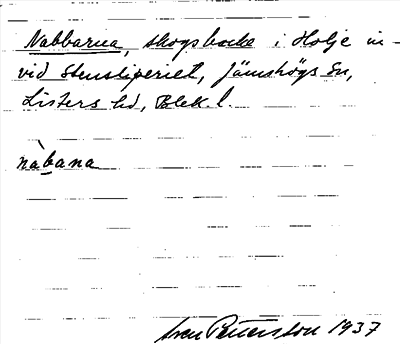 Nabbarna, skogsbacke i Holje in-
vid Stensliperiet, Jämshögs Sn,
Listers hd, Blek. l.
nàbana
Sven Petersson 1937